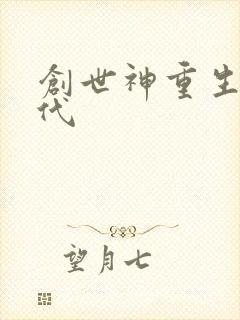 創世神重生
代
望月七